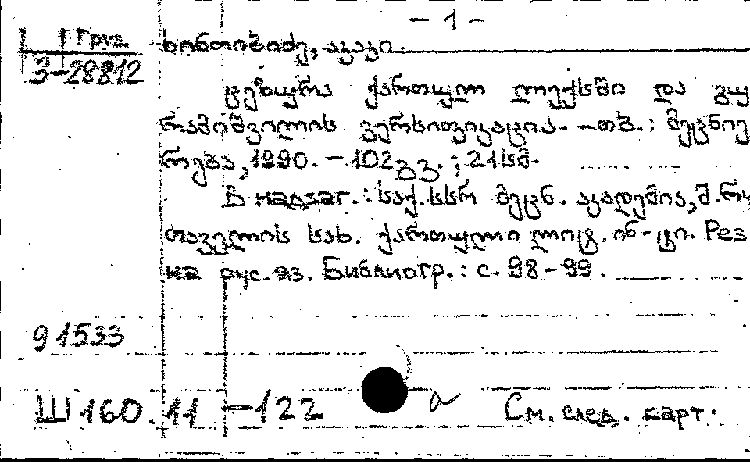 – 1 –
Груз
3-28812
ხინთიბიძე, აკაკი.
ცეზურა ქართულ ლექსში და გუ
რამიშვილის ვერსიფიკაცია. –თბ.: მეცნიე
რება, 1990. – 102გვ. ; 21სმ.
В надзаг.: საქ. სსრ მეცნ. აკადემია, შ. რუ
თაველის სახ. ქართული ლიტ. ინ-ტი. Рез
на рус. яз. Библиогр.: с. 98–99.
91533
Ш160.11 –122 а См. след. карт.